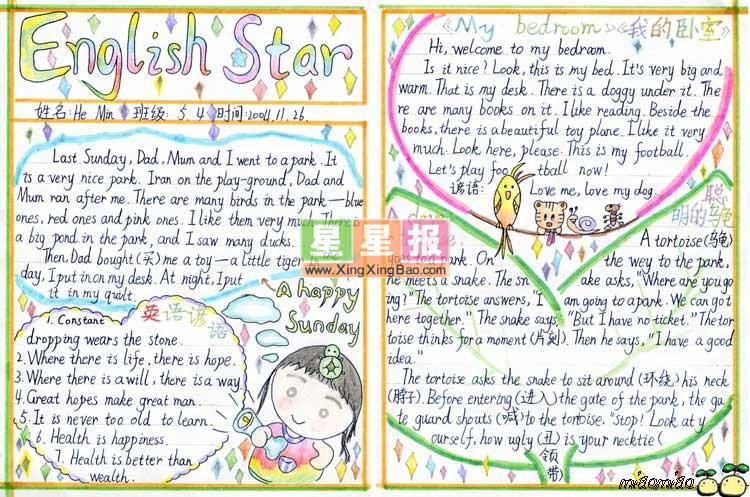 English Star
姓名: He Min 班级: 5.4 时间: 2004.11.26.
Last Sunday, Dad, Mum and I went to a park. It
is a very nice park. I ran on the play-ground, Dad and
Mum ran after me. There are many birds in the park—blue
ones, red ones and pink ones. I like them very much. There is
a big pond in the park, and I saw many ducks.
Then, Dad bought (买) me a toy—a little tiger. In the
day, I put it on my desk. At night, I put
it in my quilt.
A happy
Sunday
英语谚语
1. Constant
dropping wears the stone.
2. Where there is life, there is hope.
3. Where there is a will, there is a way
4. Great hopes make great man.
5. It is never too old to learn.
6. Health is happiness.
7. Health is better than
wealth.
星星报
www.XingXingBao.com
《My bedroom》《我的卧室》
Hi, welcome to my bedroom.
Is it nice? Look, this is my bed. It's very big and
warm. That is my desk. There is a doggy under it. The
re are many books on it. I like reading. Beside the
books, there is a beautiful toy plane. I like it very
much. Look here, please. This is my football.
Let's play football now!
谚语: Love me, love my dog.
聪明的乌龟
A tortoise (乌龟)
goes to a park. On the wey to the park,
he meets a snake. The snake asks, "Where are you go
ing?" The tortoise answers, "I am going to a park. We can got
here together." The snake says, "But I have no ticket." The tor
toise thinks for a moment (片刻). Then he says, "I have a good
idea."
The tortoise asks the snake to sit around (环绕) his neck
(脖子). Before entering (进入) the gate of the park, the ga
te guard shouts (喊) to the tortoise. "Stop! Look at y
ourself, how ugly (丑) is your necktie (
领带)
miāomiāo